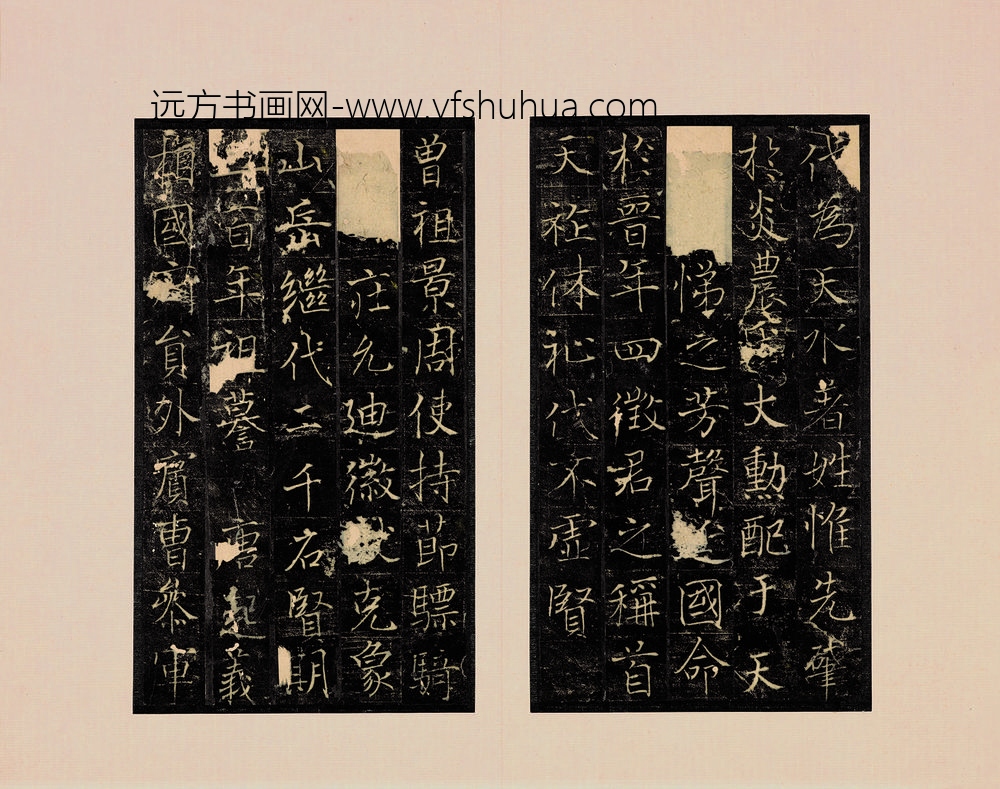 远方书画网-www.yfshuhua.com
代為天水著姓惟先肇
於炎農大勳配于天
悌之芳聲國命
於晉年四徵君之稱首
天祚休祉代不虛賢
曾祖景周使持節驃騎
庄允迪徽克象
山岳繼代二千石賢期
百年祖謩唐起義
相國員外賓曹參軍